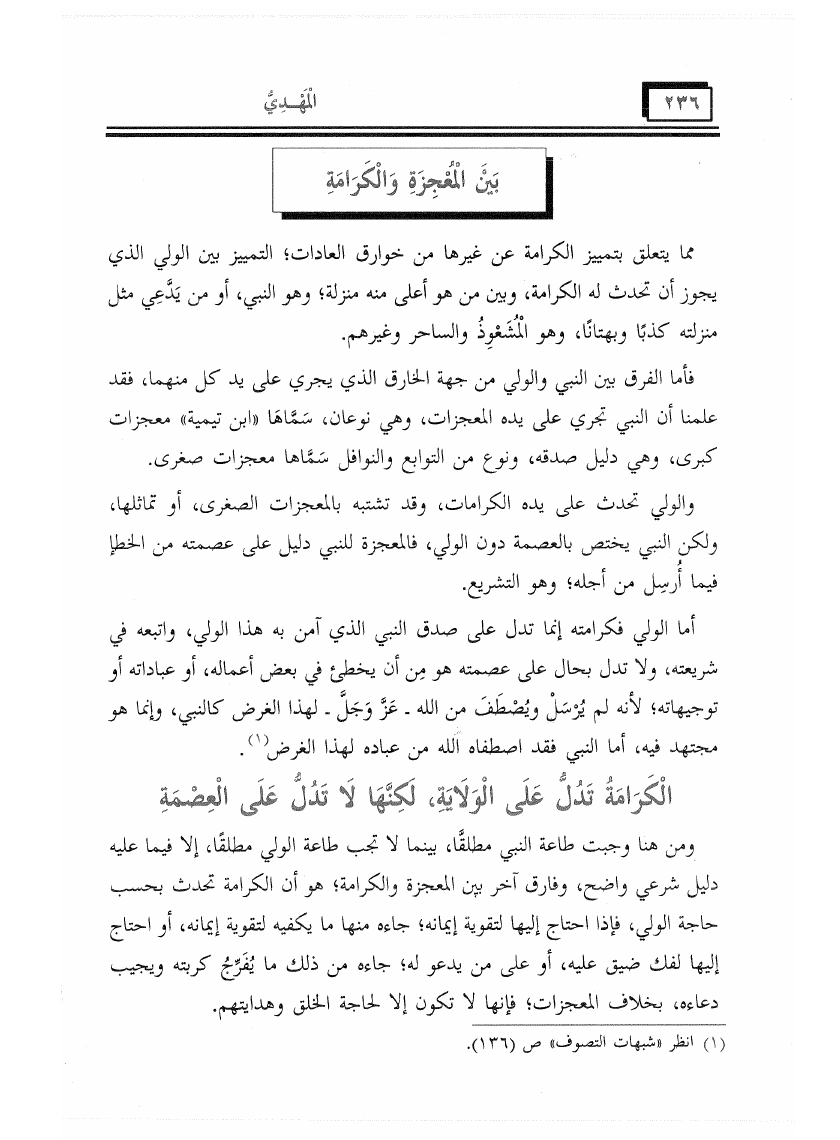 ٢٣٦
الْمَهْـدِيُّ
بَيْنَ الْمُعْجِزَةِ وَالْكَرَامَةِ
مما يتعلق بتمييز الكرامة عن غيرها من خوارق العادات؛ التمييز بين الولي الذي
يجوز أن تحدث له الكرامة، وبين من هو أعلى منه منزلة؛ وهو النبي، أو من يَدَّعِي مثل
منزلته كذبًا وبهتانًا، وهو الْمُشَعْوِذُ والساحر وغيرهم.
فأما الفرق بين النبي والولي من جهة الخارق الذي يجري على يد كل منهما، فقد
علمنا أن النبي تجري على يده المعجزات، وهي نوعان، سَمَّاهَا «ابن تيمية» معجزات
كبرى، وهي دليل صدقه، ونوع من التوابع والنوافل سَمَّاها معجزات صغرى.
والولي تحدث على يده الكرامات، وقد تشتبه بالمعجزات الصغرى، أو تماثلها،
ولكن النبي يختص بالعصمة دون الولي، فالمعجزة للنبي دليل على عصمته من الخطإ
فيما أُرسِل من أجله؛ وهو التشريع.
أما الولي فكرامته إنما تدل على صدق النبي الذي آمن به هذا الولي، واتبعه في
شريعته، ولا تدل بحال على عصمته هو مِن أن يخطئ في بعض أعماله، أو عباداته أو
توجيهاته؛ لأنه لم يُرْسَلْ ويُصْطَفَ من الله ـ عَزَّ وَجَلَّ ـ لهذا الغرض كالنبي، وإنما هو
مجتهد فيه، أما النبي فقد اصطفاه الله من عباده لهذا الغرض(١).
الْكَرَامَةُ تَدُلُّ عَلَى الْوَلَايَةِ، لَكِنَّهَا لَا تَدُلُّ عَلَى الْعِصْمَةِ
ومن هنا وجبت طاعة النبي مطلقًا، بينما لا تجب طاعة الولي مطلقًا، إلا فيما عليه
دليل شرعي واضح، وفارق آخر بين المعجزة والكرامة؛ هو أن الكرامة تحدث بحسب
حاجة الولي، فإذا احتاج إليها لتقوية إيمانه؛ جاءه منها ما يكفيه لتقوية إيمانه، أو احتاج
إليها لفك ضيق عليه، أو على من يدعو له؛ جاءه من ذلك ما يُفَرِّجُ كربته ويجيب
دعاءه، بخلاف المعجزات؛ فإنها لا تكون إلا لحاجة الخلق وهدايتهم.
(١) انظر «شبهات التصوف» ص (١٣٦).